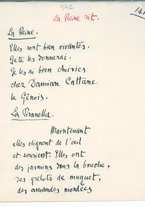 La Reine
La Reine.
Elles sont bien vivantes.
Je te les donnerai.
Je les ai bien choisies
chez Damian Cattane
le Génois.
La Piranella
Maintenant
elles clignent de l'œil
et sourient. Elles ont
des jasmins dans la bouche,
des grelots de muguet,
des amandes mondées